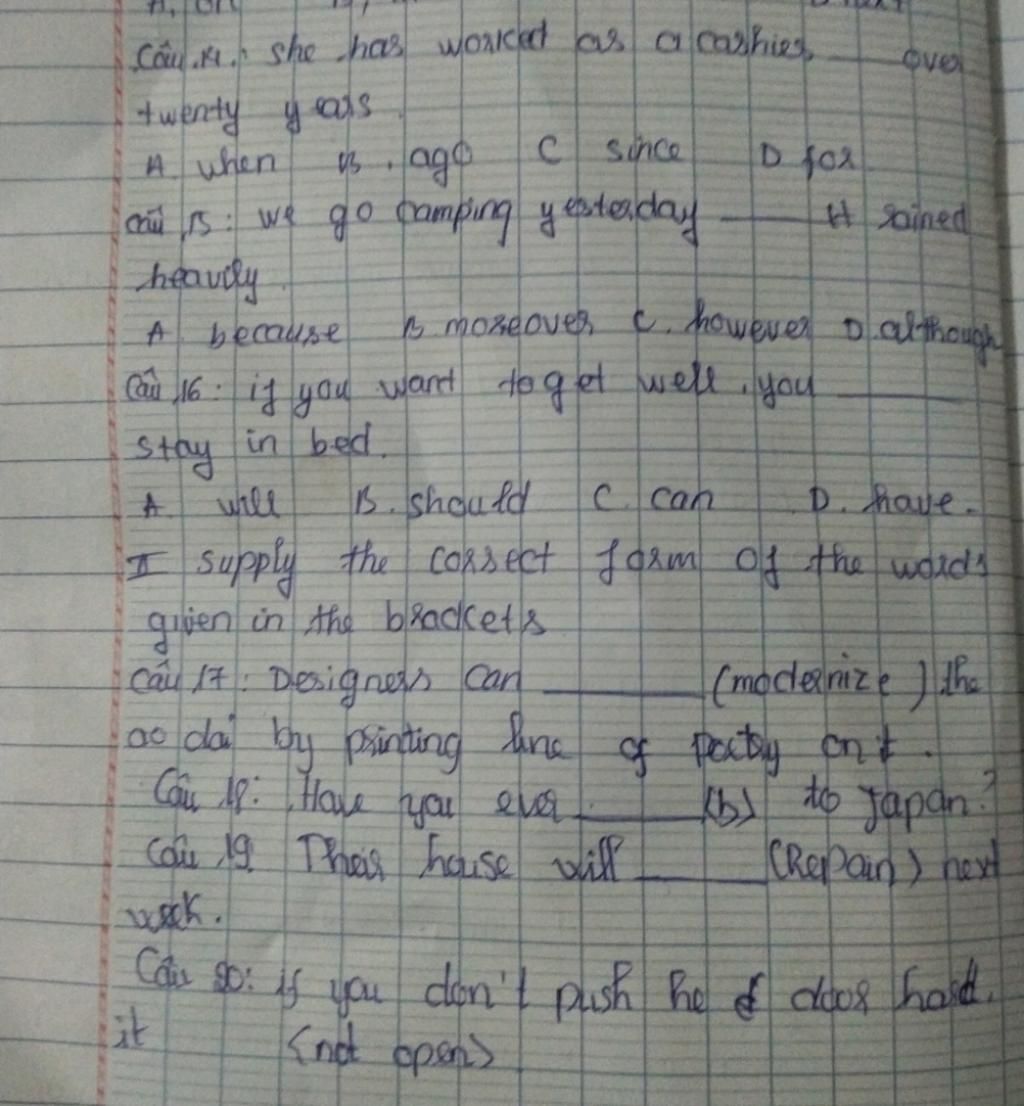 Câu 14: she has worked as a cashier over
twenty years
A when B. ago C since D for
Câu 15: we go camping yesterday ____ it rained
heavily
A because B moreover C. however D although
Câu 16: if you want to get well, you ____
stay in bed.
A will B. should C. can D. have.
II supply the correct form of the words
given in the brackets
Câu 17: Designers can ____ (modernize) the
ao dai by printing line of poetry on it.
Câu 18: Have you ever ____ (b) to Japan?
Câu 19. Their house will ____ (Repair) next
week.
Câu 20: if you don't push he door hard.
it (not open)